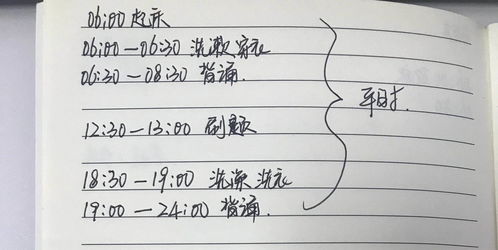 06:00 起床
06:00—06:30 洗漱 穿衣
06:30—08:30 背诵.
12:30—13:00 刷题
18:30—19:00 洗漱 洗衣
19:00—24:00 背诵.
平时.